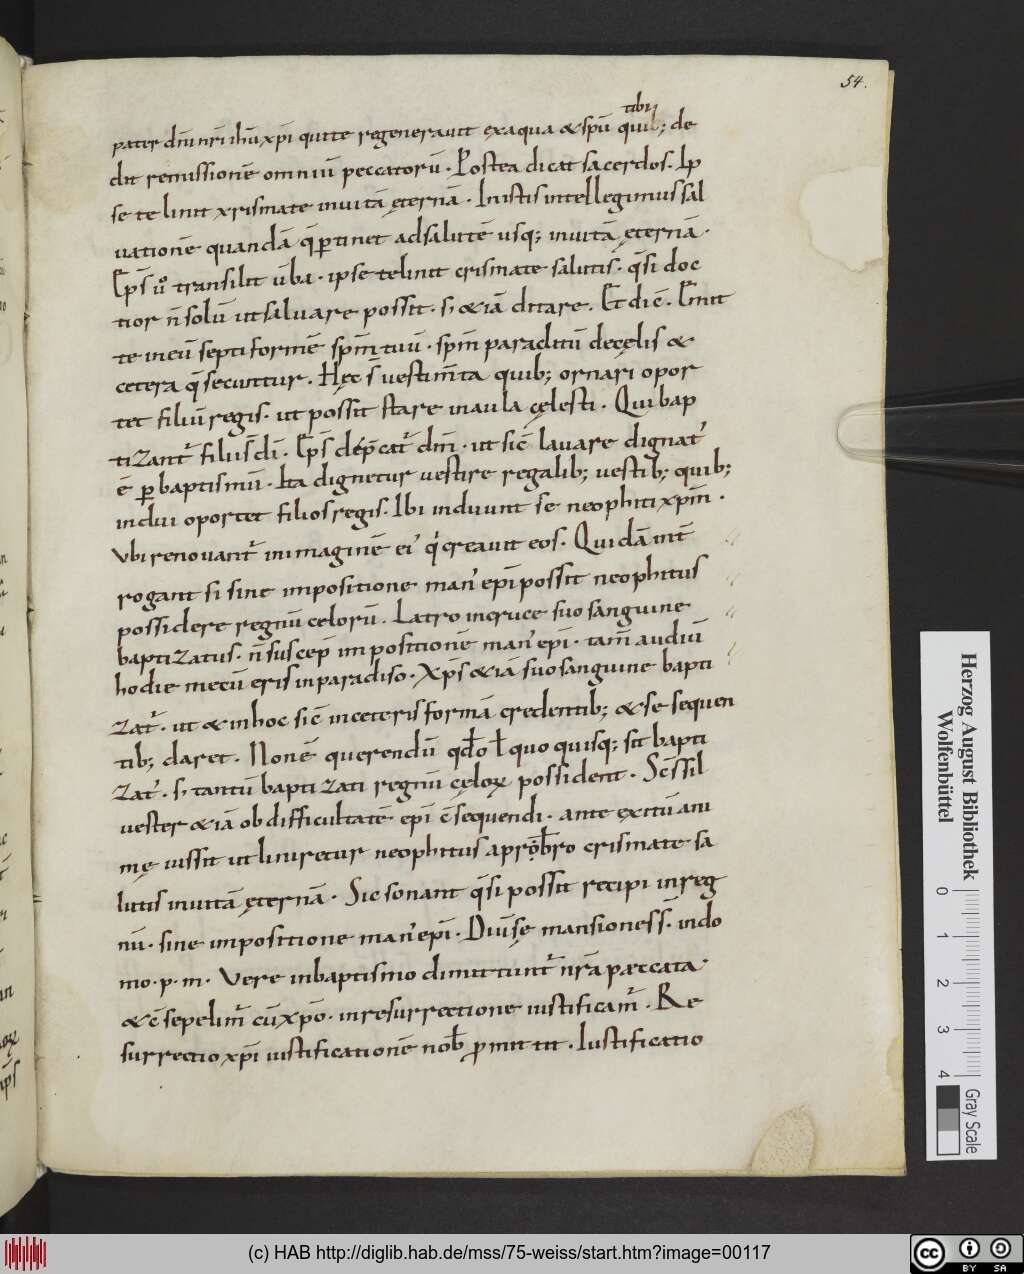 54.
tibi
pater dn̄i nr̄i ihū xp̄i qui te regeneravit ex aqua & spū quib; de
dit remissionē omniū peccatorū. Postea dicat sacerdos. Ip
se te linit xrismate in vitā ęternā. In istis intellegimus sal
vationē quandā q̄ ꝑtinet ad salutē usq; in vitā ęternā.
Ep̄s ů transilit v̄ba. ipse te linit crismate salutis. q̄si doc
tior n̄ solū ut salvare possit. s; & iā ditare. Et dic̄. Emit
te in eū septiformē sp̄m tuū. sp̄m paraclitū de cęlis &
cetera q̄ secuntur. Hęc s̄ vestim̄ta quib; ornari opor
tet filiū regis. ut possit stare in aula cęlesti. Qui bap
tizant̄ filii s̄ dī. Ep̄s dep̄cat̄ dm̄. ut sic̄ lavare dignat'
ē ꝑ baptismū. Ita dignetur vestire regalib; vestib; quib;
indui oportet filios regis. Ibi induunt se neophiti xp̄m.
Ubi renovant̄ in imaginē ei' q̇ creavit eos. Quidā int̄
rogant si sine impositione man' epī possit neophitus
possidere regnū celorū. Latro in cruce suo sanguine
baptizatus. n̄ suscep̄ impositionē man' epī. tam̄ audiū
hodie mecū eris in paradiso. Xp̄s & iā suo sanguine bapti
zat̄. ut & in hoc sic̄ in ceteris formā credentib; & se sequen
tib; daret. Non ē querendū qđo ł quo quisq; sit bapti
zat'. s; tantū baptizati regnū cęloꝝ possident. Sc̄s sil
vester & iā ob difficultatē epī c̄sequendi. ante exitū ani
mę iussit ut liniretur neophitus a pr̄b̄ro crismate sa
lutis in vitā ęternā. Sic sonant q̄si possit recipi in reg
nū. sine impositione man' epī. Diūsę mansiones s̄. in do
mo. p. m. Vere in baptismo dimittunt̄ nr̄a pęccata.
& c̄sepelim̄ cū xp̄o. in resurrectione iustificam̄. Re
surrectio xp̄i iustificationē nob̄ ꝓmittit. Iustificatio
Herzog August Bibliothek
Wolfenbüttel
0 1 2 3 4
Gray Scale
(c) HAB http://diglib.hab.de/mss/75-weiss/start.htm?image=00117
cc BY SA